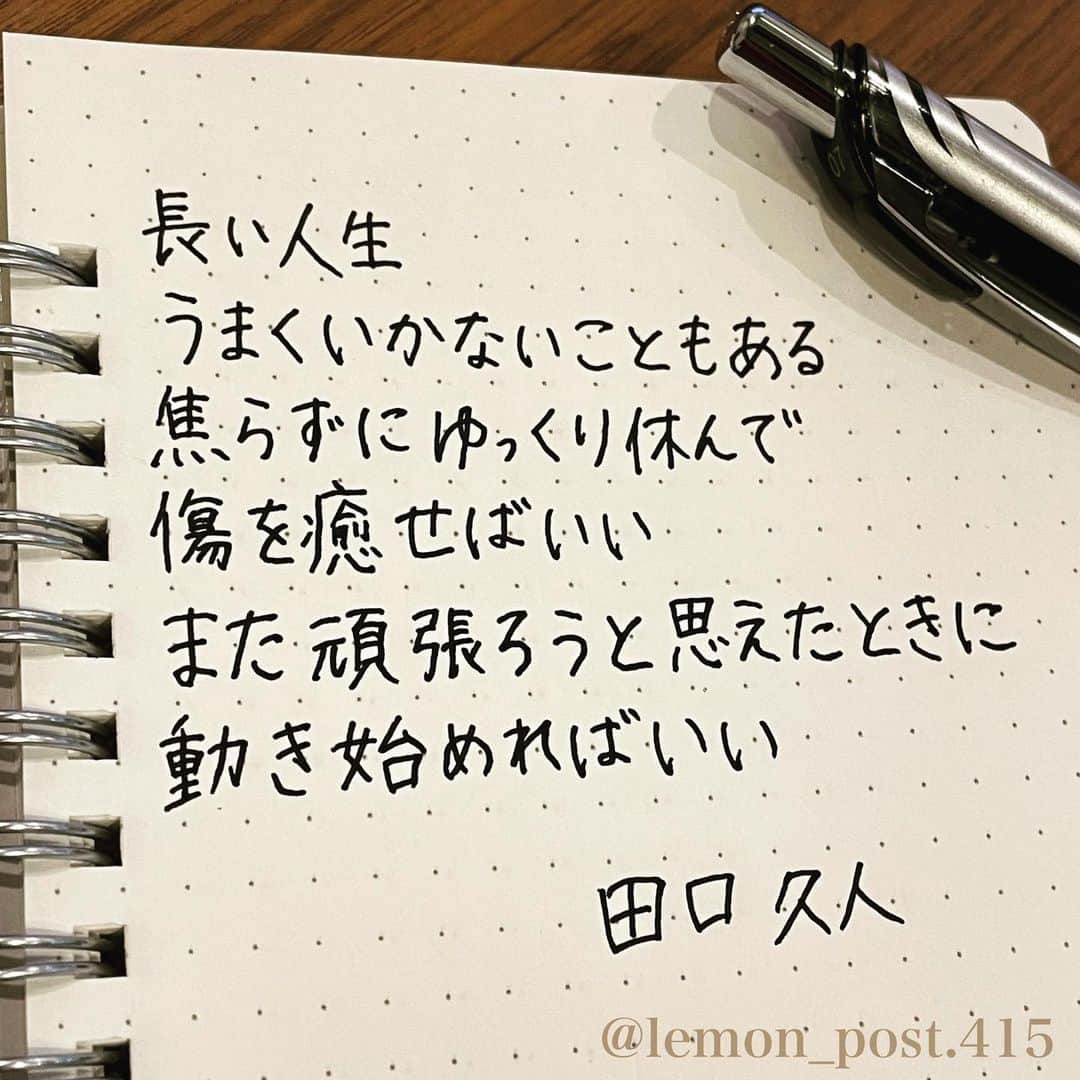 長い人生
うまくいかないこともある
焦らずにゆっくり休んで
傷を癒せばいい
また頑張ろうと思えたときに
動き始めればいい
田口久人
07
@lemon_post.415